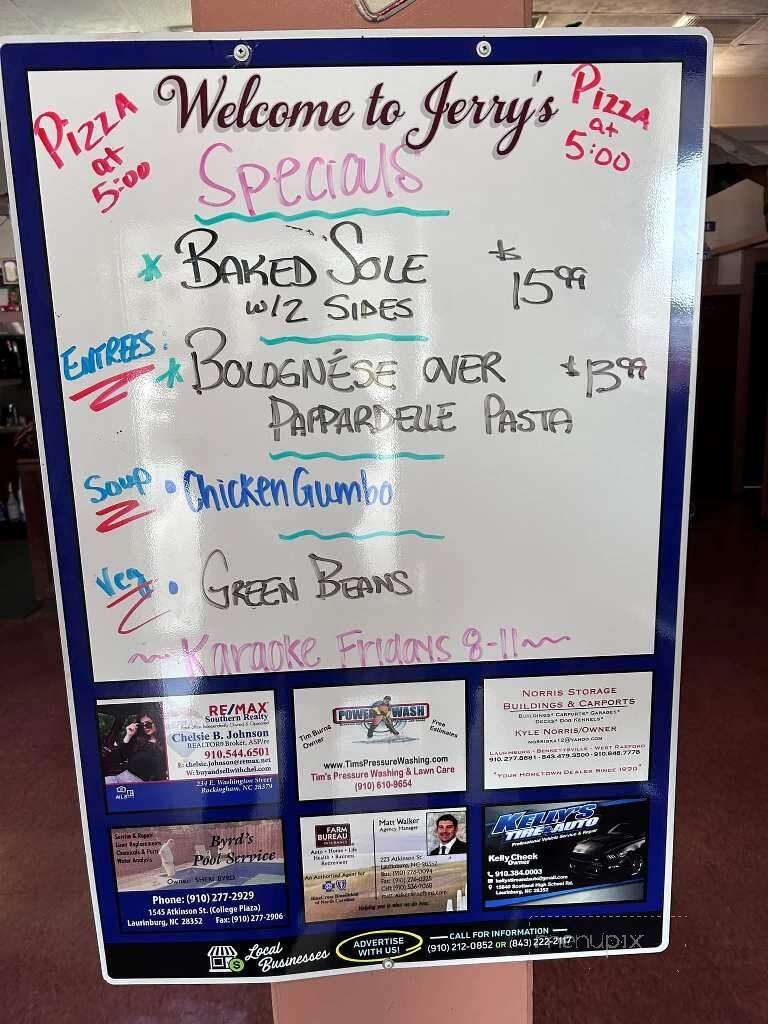 Welcome to Jerry's
PIZZA
at
5:00
PIZZA
at
5:00
Specials
* BAKED SOLE $15.99
W/2 SIDES
ENTREES:
* BOLOGNÉSE OVER $13.99
PAPPARDELLE PASTA
Soup • Chicken Gumbo
Veg • GREEN BEANS
~Karaoke Fridays 8-11~
RE/MAX
Southern Realty
Chelsie B. Johnson
REALTOR® Broker, ASP/re
910.544.6501
E: chelsie.johnson@remax.net
W: buyandsellwithchel.com
234 E. Washington Street
Rockingham, NC 28379
POWER WASH
Tim Burns
Owner
Free
Estimates
www.TimsPressureWashing.com
Tim's Pressure Washing & Lawn Care
(910) 610-9654
NORRIS STORAGE
BUILDINGS & CARPORTS
BUILDINGS* CARPORTS* GARAGES*
DECKS* DOG KENNELS*
KYLE NORRIS/OWNER
LAURINBURG - BENNETTSVILLE - WEST RAEFORD
910.277.8691 - 843.479.3500 - 910.848.7778
"YOUR HOMETOWN DEALER SINCE 1970"
Service & Repair
Liner Replacements
Chemicals & Parts
Water Analysis
Byrd's
Pool Service
Owner: SHERI BYRD
Phone: (910) 277-2929
1545 Atkinson St. (College Plaza)
Laurinburg, NC 28352 Fax: (910) 277-2906
FARM
BUREAU
INSURANCE
Auto • Home • Life
Health • Business
Retirement
An Authorized Agent for
Blue Cross BlueShield
of North Carolina
Matt Walker
Agency Manager
223 Atkinson St.
Laurinburg, NC 28352
Helping you is what we do best.
KELLY'S
TIRE & AUTO
Professional Vehicle Service & Repair
Kelly Cheek
Owner
910.384.0003
kellystireandauto@gmail.com
15840 Scotland High School Rd.
Laurinburg, NC 28352
Local
Businesses
ADVERTISE
WITH US!
CALL FOR INFORMATION
(910) 212-0852 OR (843) 222-2117
menupix